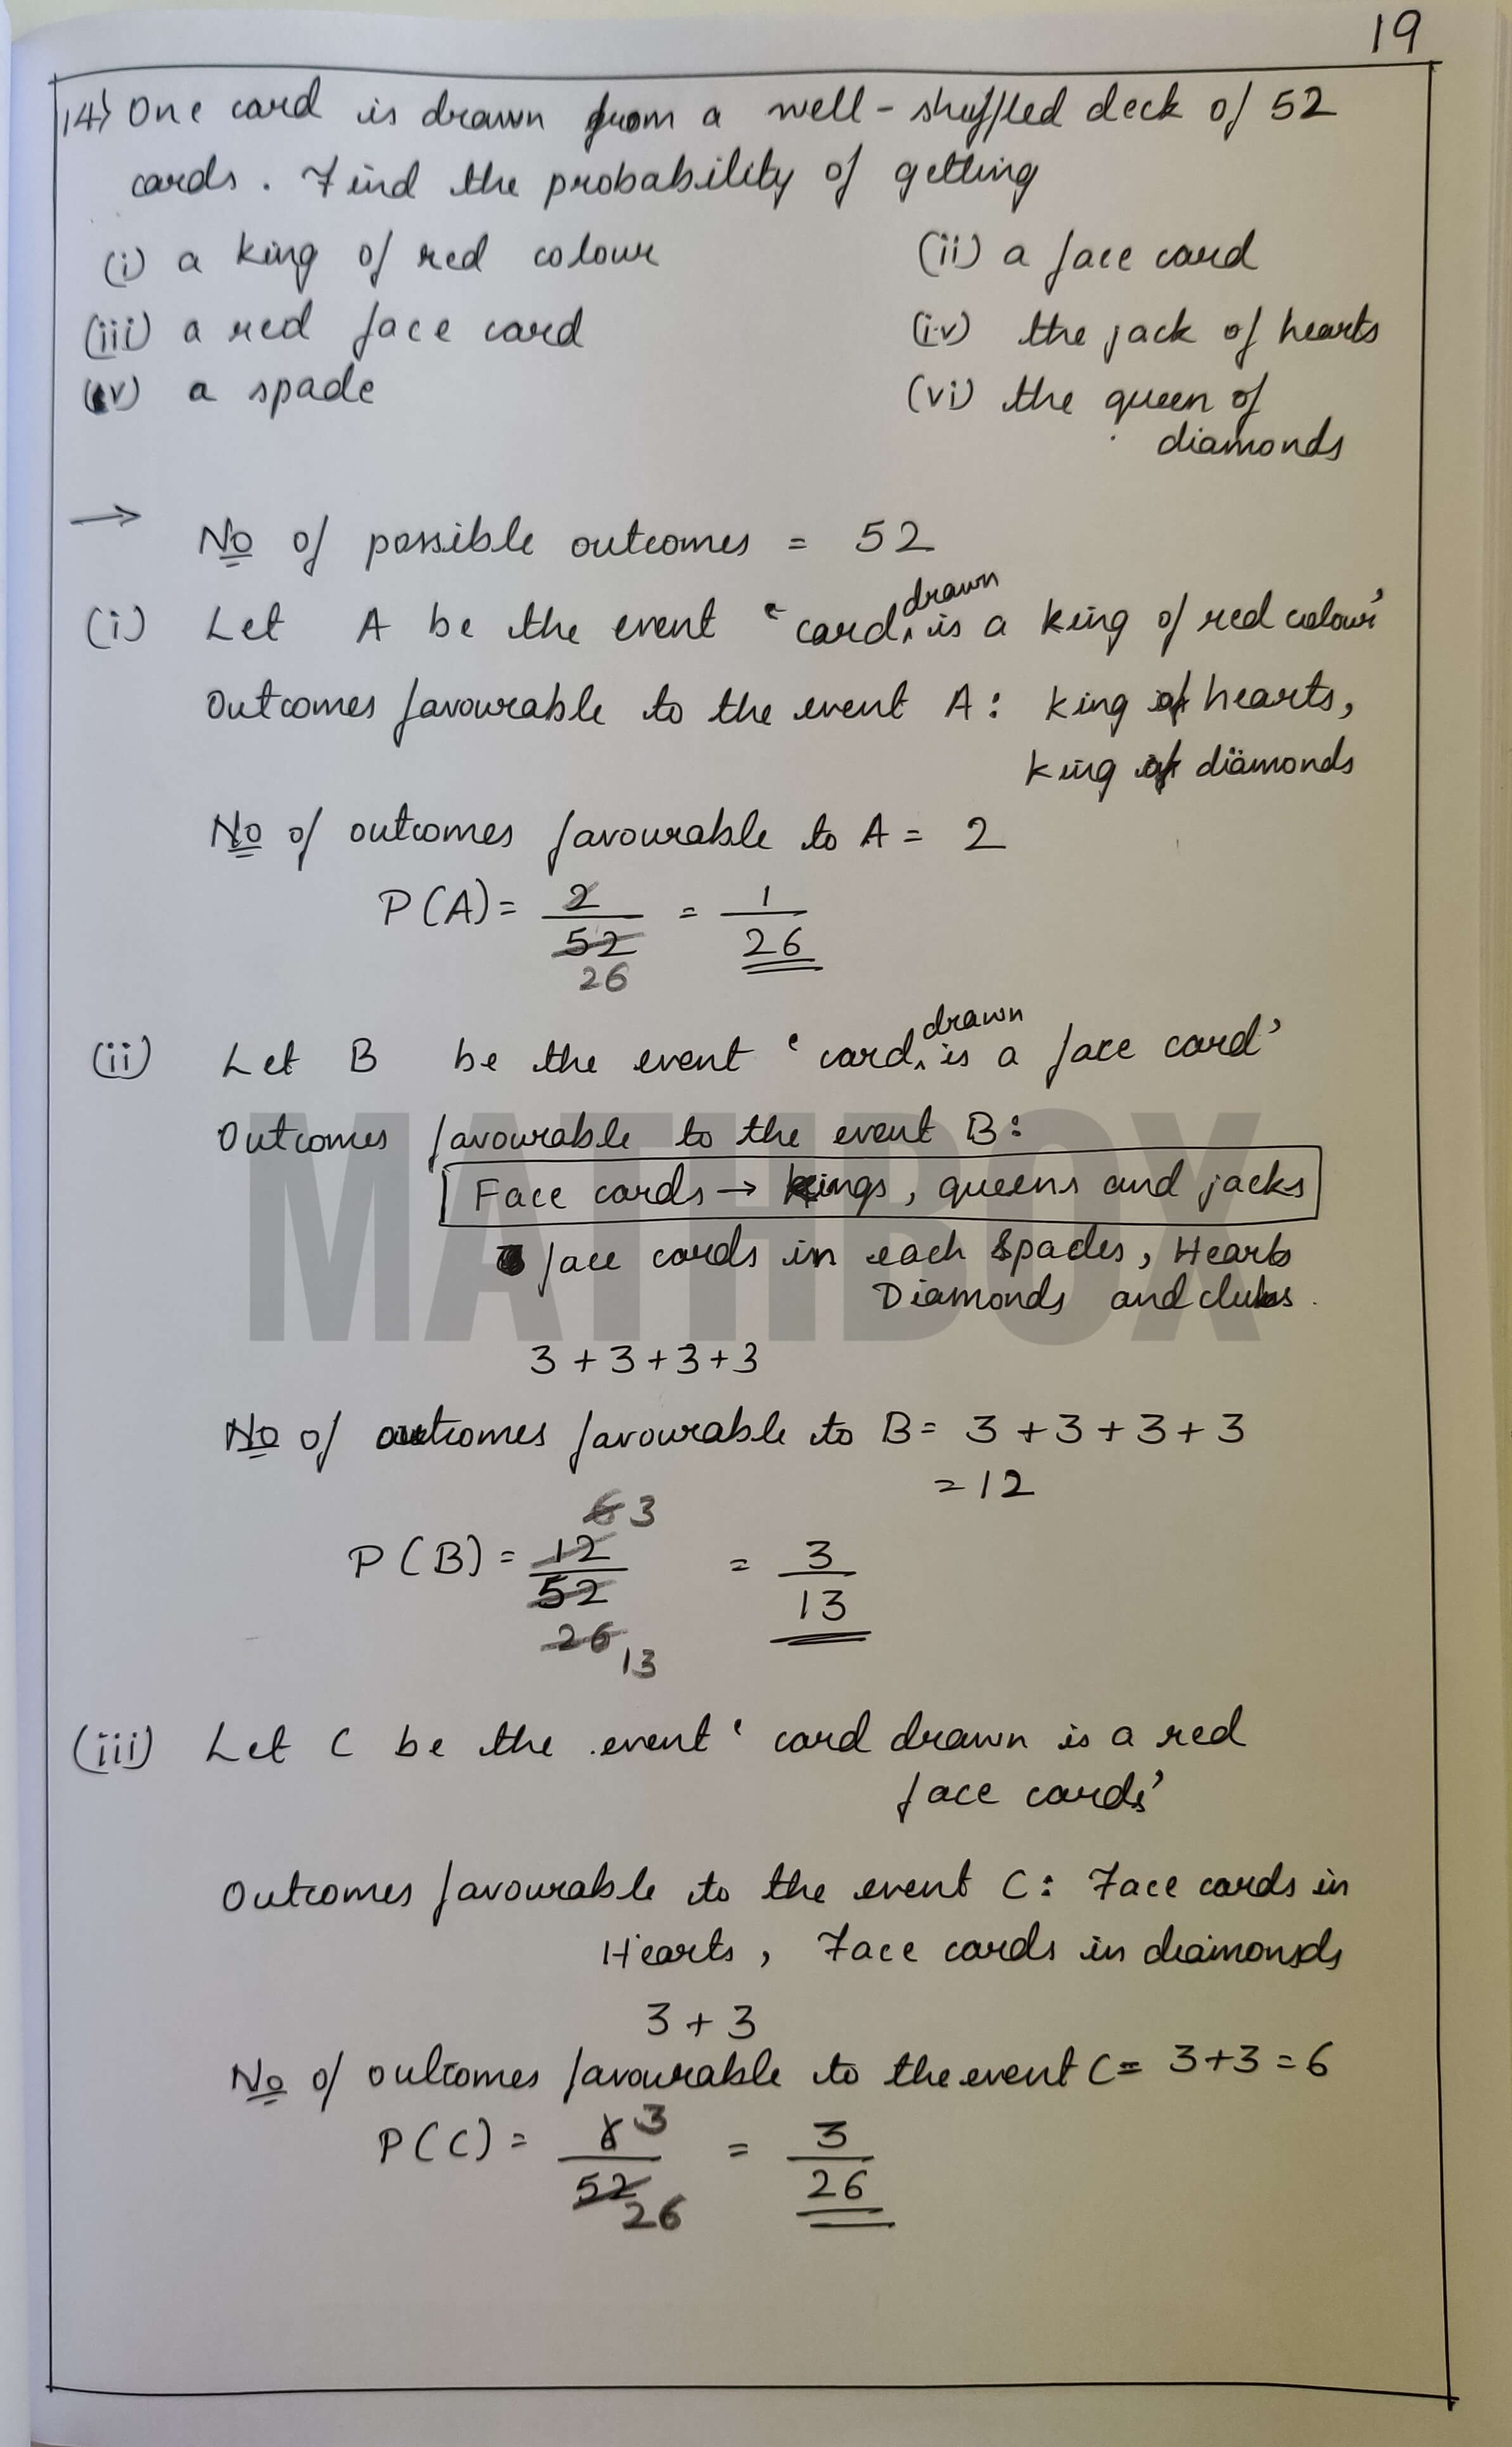 19
14) One card is drawn from a well-shuffled deck of 52
cards. Find the probability of getting
(i) a king of red colour (ii) a face card
(iii) a red face card (iv) the jack of hearts
(v) a spade (vi) the queen of
diamonds
→ No of possible outcomes = 52
(i) Let A be the event 'card drawn is a king of red colour'
Outcomes favourable to the event A: king of hearts,
king of diamonds
No of outcomes favourable to A = 2
P(A) = 2/52 = 1/26
26
(ii) Let B be the event 'card drawn is a face card'
Outcomes favourable to the event B:
MATHBOX
Face cards → kings, queens and jacks
face cards in each Spades, Hearts
Diamonds and clubs.
3 + 3 + 3 + 3
No of outcomes favourable to B = 3 + 3 + 3 + 3
= 12
6 3
P(B) = 12/52 = 3/13
26 13
(iii) Let C be the event 'card drawn is a red
face cards'
Outcomes favourable to the event C: Face cards in
Hearts, Face cards in diamonds
3 + 3
No of outcomes favourable to the event C = 3+3 = 6
P(C) = 6 3/52 26 = 3/26